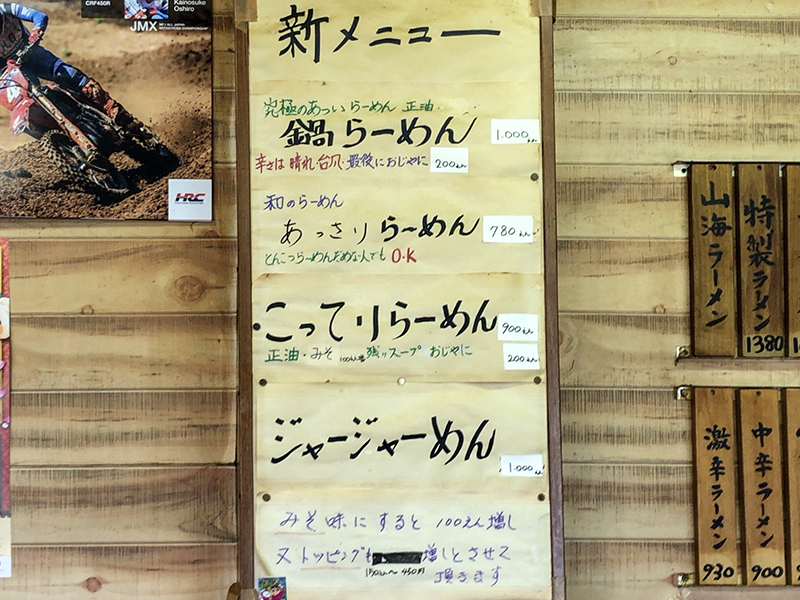 CRF450R
Kainosuke
Oshiro
JMX
HRC
新メニュー
究極のあっいらーめん 正油.
鍋らーめん 1.000
辛さは 晴れ.台風.最後におじやに 200えん
和のらーめん
あっさりらーめん 780えん
とんこつらーめんだめな人でも O.K
こってりらーめん 900えん
正油・みそ 100えん増 残りスープ おじやに 200えん
ジャージャーめん
1.000
みそ味にすると 100えん増し
又トッピングも 増しとさせて
150えん〜450円 頂きます
山海ラーメン
特製ラーメン
1380
激辛ラーメン
930
中辛ラーメン
900